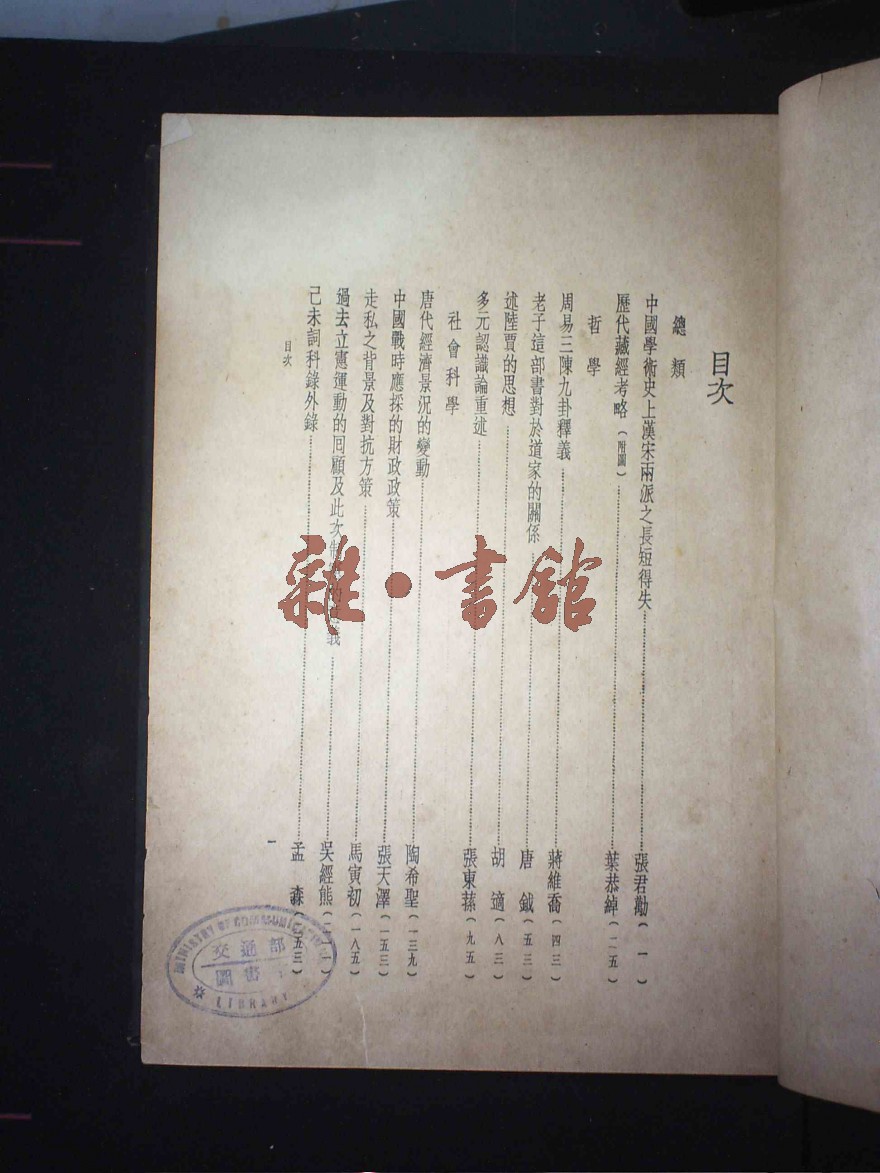 目次
總類
中國學術史上漢宋兩派之長短得失 張君勱(一)
歷代藏經考略(附圖) 葉恭綽(二五)
哲學
周易三陳九卦釋義 蔣維喬(四三)
老子這部書對於道家的關係 唐鉞(五三)
述陸賈的思想 胡適(八三)
多元認識論重述 張東蓀(九五)
社會科學
唐代經濟景況的變動 陶希聖(一三九)
中國戰時應採的財政政策 張天澤(一五三)
走私之背景及對抗方策 馬寅初(一八五)
過去立憲運動的回顧及此次制 義 吳經熊
己未詞科錄外錄 孟森(二五三)
目次
一
雜·書館
MINISTRY OF COMMUNICATIONS
交通部
圖書
LIBRARY